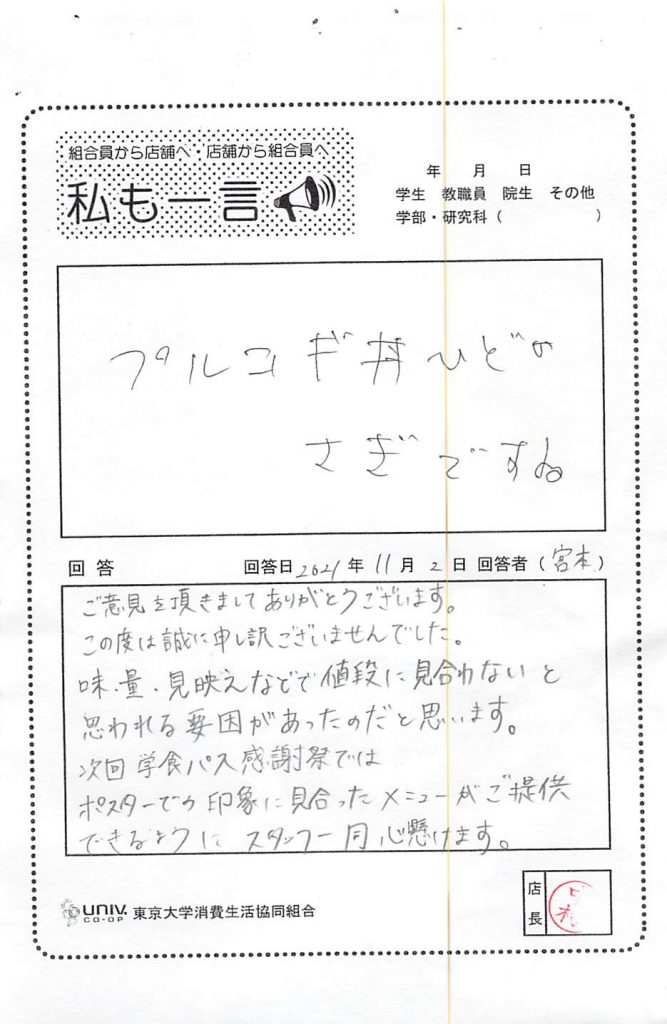 組合員から店舗へ・店舗から組合員へ
私も一言
年 月 日
学生 教職員 院生 その他
学部・研究科( )
プルコギ丼ひどの
さぎですね
回答 回答日 2021年11月2日 回答者(宮本)
ご意見を頂きましてありがとうございます。
この度は誠に申し訳ございませんでした。
味・量・見映えなどで値段に見合わないと
思われる要因があったのだと思います。
次回学食パス感謝祭では
ポスターでの印象に見合ったメニューがご提供
できるように スタッフ一同心懸けます。
店長
UNIV. CO-OP 東京大学消費生活協同組合